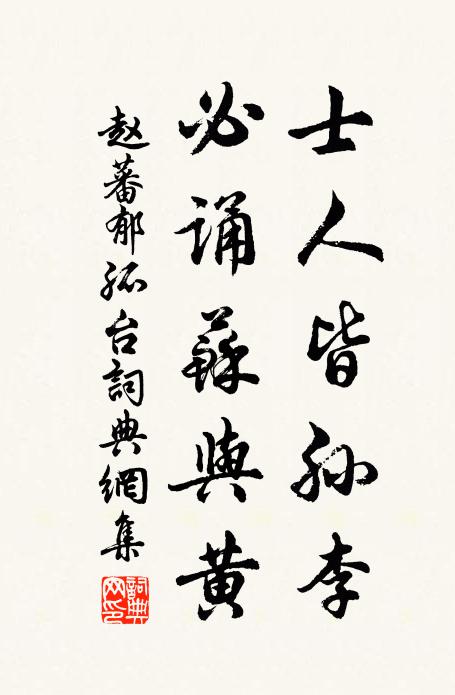 士人皆孙李
必诵蘇與黄
赵蕃郁孤台詞典網集
詞典网印